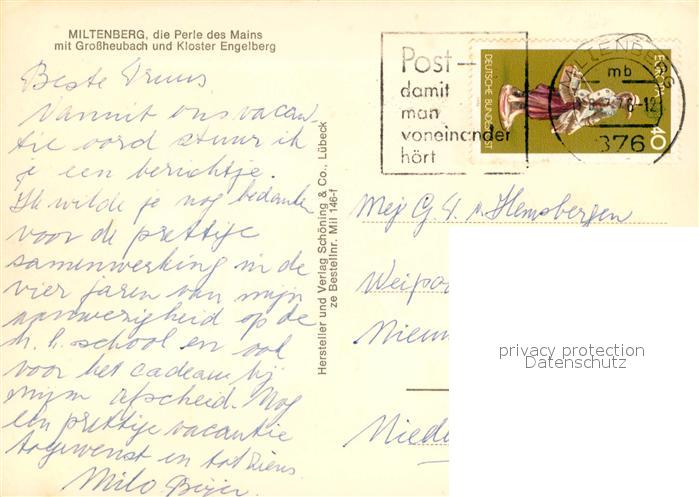 MILTENBERG, die Perle des Mains
mit Großheubach und Kloster Engelberg
Beste Truus
Vanuit ons vacan-
tie oord stuur ik
je een berichtje.
Ik wilde je nog bedanken
voor de prettige
samenwerking in de
vier jaren van mijn
aanwezigheid op de
h. h. school en ook
voor het cadeau bij
mijn afscheid. Nog
een prettige vacantie
toegewenst en tot ziens
Milo
Hersteller und Verlag Schöning & Co., Lübeck
ze Bestellnr. Mil 146-f
Post-
damit
man
voneinander
hört
DEUTSCHE BUNDESPOST
40
MILTENBERG
mb
-12
876
Mej G. v. Hemsbergen
Nieuw
Niede
privacy protection
Datenschutz